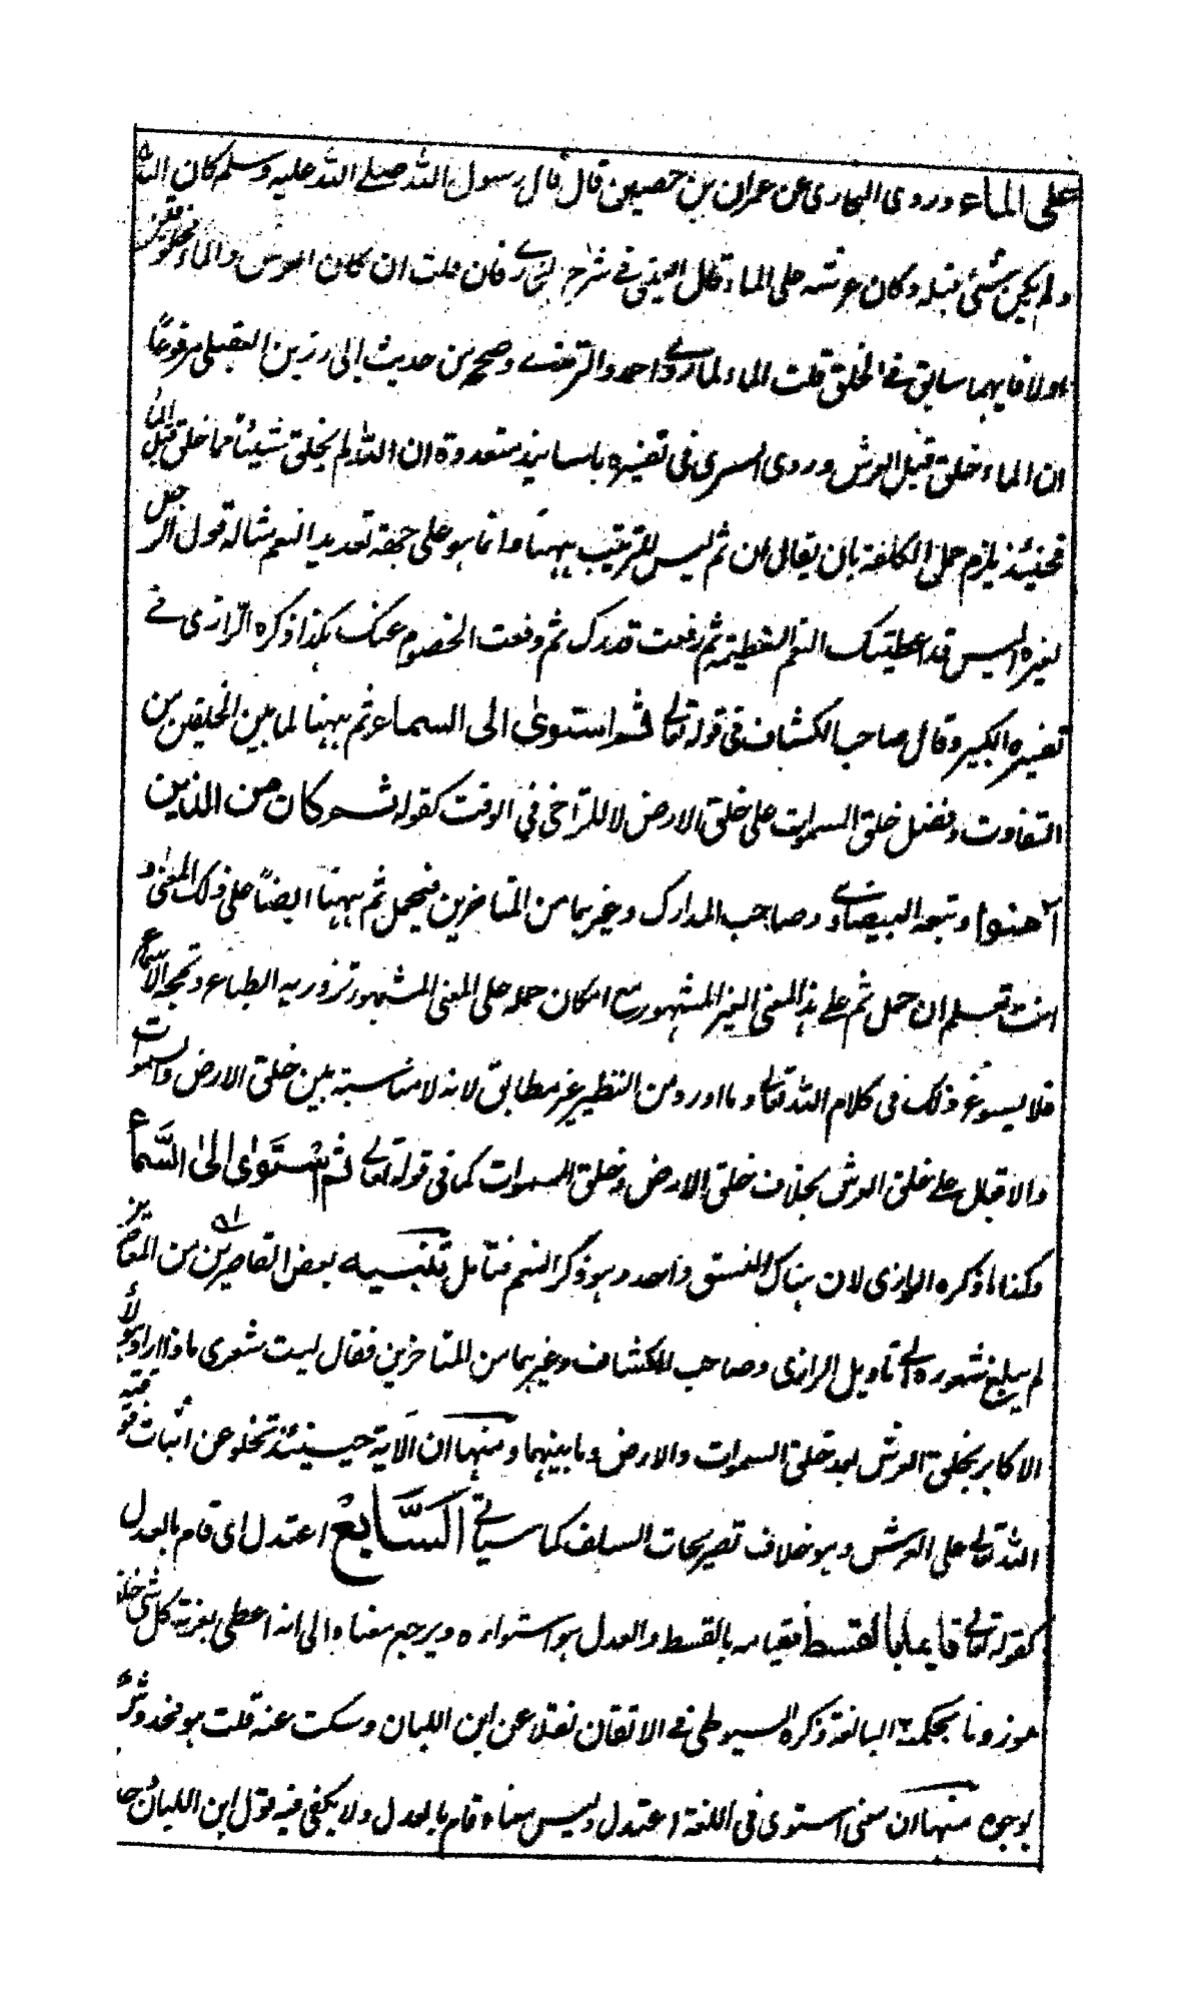 على الماء وروى البخاري عن عمران بن حصين قال قال رسول الله صلى الله عليه وسلم كان الله
ولم يكن شئ قبله وكان عرشه على الماء قال العيني في شرح البخاري فان قلت ان كان العرش والماء مخلوقين
اولا فايهما سابق في الخلق قلت الماء لما روى احمد والترمذي وصححه من حديث ابى رزين العقيلي مرفوعًا
ان الماء خلق قبل العرش وروى السدى فى تفسيره باسانيد متعددة ان الله لم يخلق شيئا مما خلق قبل الماء
فحينئذ يلزم حمل الكلفة بان يقال ان ثم ليس للترتيب ههنا وانما هو على جهة تعديد النعم مثاله قول الرجل
لغيره اليس قد اعطيتك النعم العظيمة ثم رفعت قدرك ثم دفعت الخصوم عنك هكذا ذكره الرازى في
تفسيره الكبير وقال صاحب الكشاف في قوله تعالى ثم استوى الى السماء ثم ههنا لما بين الخلقين من
التفاوت وفضل خلق السموات على خلق الارض لا للتراخى في الوقت كقوله ثم كان من الذين
آمنوا وتبعه البيضاوي وصاحب المدارك وغيرهما من المتاخرين فيحمل ثم ههنا ايضاً على ذلك المعنى و
انت تعلم ان حمل ثم على هذا المعنى الغير المشهور مع امكان حمله على المعنى المشهور تزوريه الطباع وتمجه الاسماع
فلا يسوغ ذلك فى كلام الله تعالى وما اورد من النظير غير مطابق لانه لا مناسبة بين خلق الارض والسموات
والاقبال على خلق العرش بخلاف خلق الارض وخلق السموات كما فى قوله تعالى ثم استوى الى السماء
وكذا ما ذكره الرازى لان هناك النسق واحد وهو ذكر النعم فتامل تنبيه بعض القاصرين من المعاصرين
لم يبلغ شعوره الى تاويل الرازى وصاحب الكشاف وغيرهما من المتاخرين فقال ليت شعرى ماذا اراد هؤلاء
الاكابر بخلق العرش بعد خلق السموات والارض وما بينهما ومنها ان الآية حينئذ تخلو عن اثبات فوقية
الله تعالى على العرش وهو خلاف تصريحات السلف كما سياتي السَّابع اعتدل اى قام بالعدل
كقوله تعالى قايما بالقسط فقيامه بالقسط والعدل هو استواءه ويرجع معناه الى انه اعطى بعزته كل شئ خلقه
موزونا بحكمته البالغة ذكره السيوطى في الاتقان نقلا عن ابن اللبان وسكت عنه قلت هو مخدوش
بوجوه منها ان معنى استوى فى اللغة اعتدل وليس معناه قام بالعدل ولا يكفى فيه قول ابن اللبان